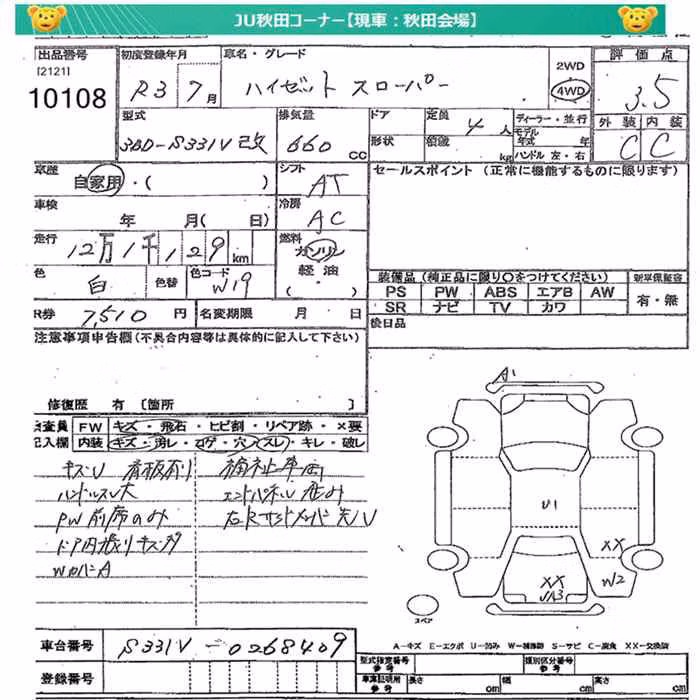 JU秋田コーナー【現車：秋田会場】
出品番号 初度登録年月 車名・グレード 2WD 評価点
[2121] 10108 R3 7月 ハイゼット スローパー 4WD 3.5
型式 排気量 ドア 定員 ディーラー・並行 外装 内装
3BD-S331V改 660 CC 形状 積載 4人 kg モデル年式 年式 ハンドル 左・右 C C
車歴 自家用・( ) シフト AT セールスポイント (正常に機能するものに限ります)
車検 年 月( 日) 冷房 AC
走行 12万1千129km 燃料 ガソリン 軽油 ( ・ )
色 白 色替 色コード W19 装備品 (純正品に限り○をつけてください) 新車保証書
PS PW ABS エアB AW 有・無
R券 7,510円 名変期限 月 日 SR ナビ TV カワ
注意事項申告欄 (不具合内容等は具体的に記入して下さい) 後日品
修復歴 有 [箇所 ]
検査員 FW キズ・飛石・ヒビ割・リペア跡・×要
記入欄 内装 キズ・汚レ・コゲ・穴・スレ・キレ・破レ
キズU 看板有り 補祉車両
ハンドルスレ大 エンドパネル歪み
PW前席のみ 右Rサイドメンバー先U
ドア内張りキズ・ガ
WカバーA
A1
U1
XX
XX W2
UA3
スペア
A－キズ E－エクボ U－凹み W－補修跡 S－サビ C－腐食 XX－交換済
車台番号 S331V-0268409 型式指定番号 参考 類別区分番号 参考
登録番号 車庫証明用 参考 長さ cm 幅 cm 高さ cm